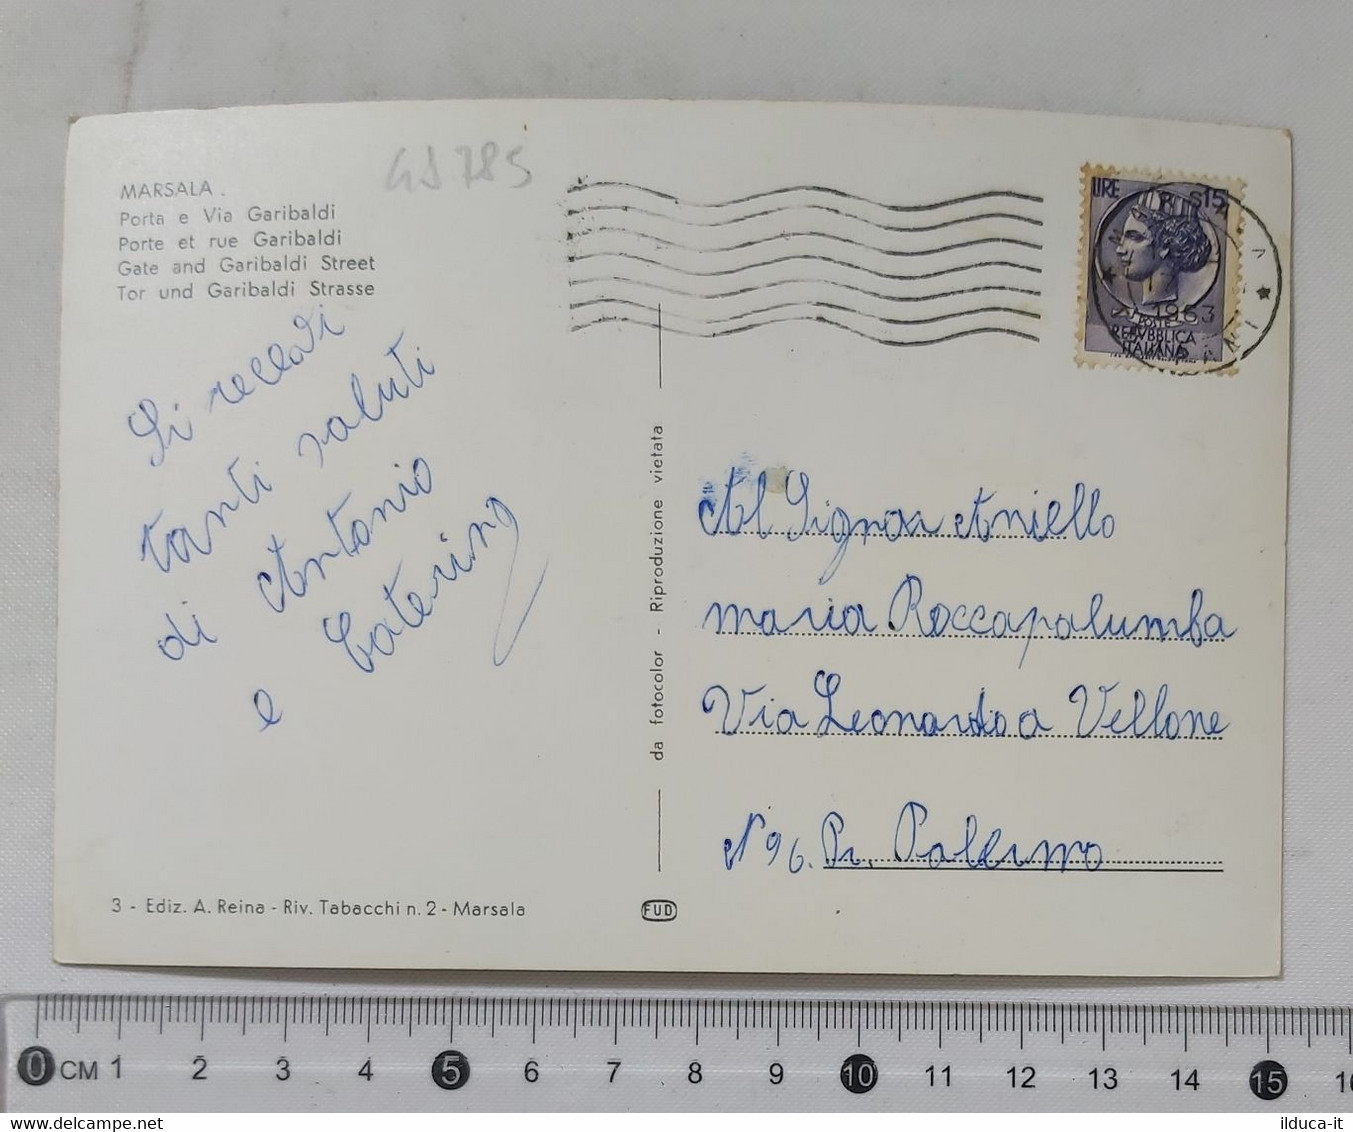 GS785
MARSALA.
Porta e Via Garibaldi
Porte et rue Garibaldi
Gate and Garibaldi Street
Tor und Garibaldi Strasse
LIRE 15
1963
POSTE
REPVBBLICA
ITALIANA
Si
tanti saluti
di Antonio
e Caterina
da fotocolor - Riproduzione vietata
Al Signora Aniello
maria Roccapalumba
Via Leonardo a Vellone
N 96. Pr. Palermo
3 - Ediz. A. Reina - Riv. Tabacchi n. 2 - Marsala
FUD
0 CM 1 2 3 4 5 6 7 8 9 10 11 12 13 14 15
www.delcampe.net
ilduca-it